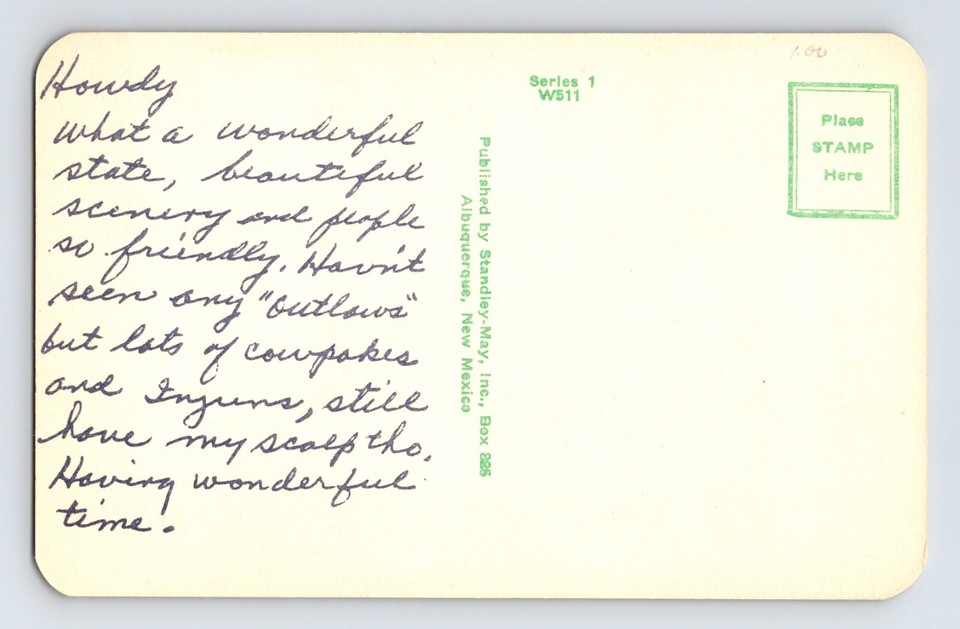 Howdy
What a wonderful
state, beautiful
scenery and people
so friendly. Havn't
seen any "outlaws"
but lots of cowpokes
and Injuns, still
have my scalp tho.
Having wonderful
time.
Published by Standley-May, Inc., Box 825
Albuquerque, New Mexico
Series 1
W511
1.00
Place
STAMP
Here